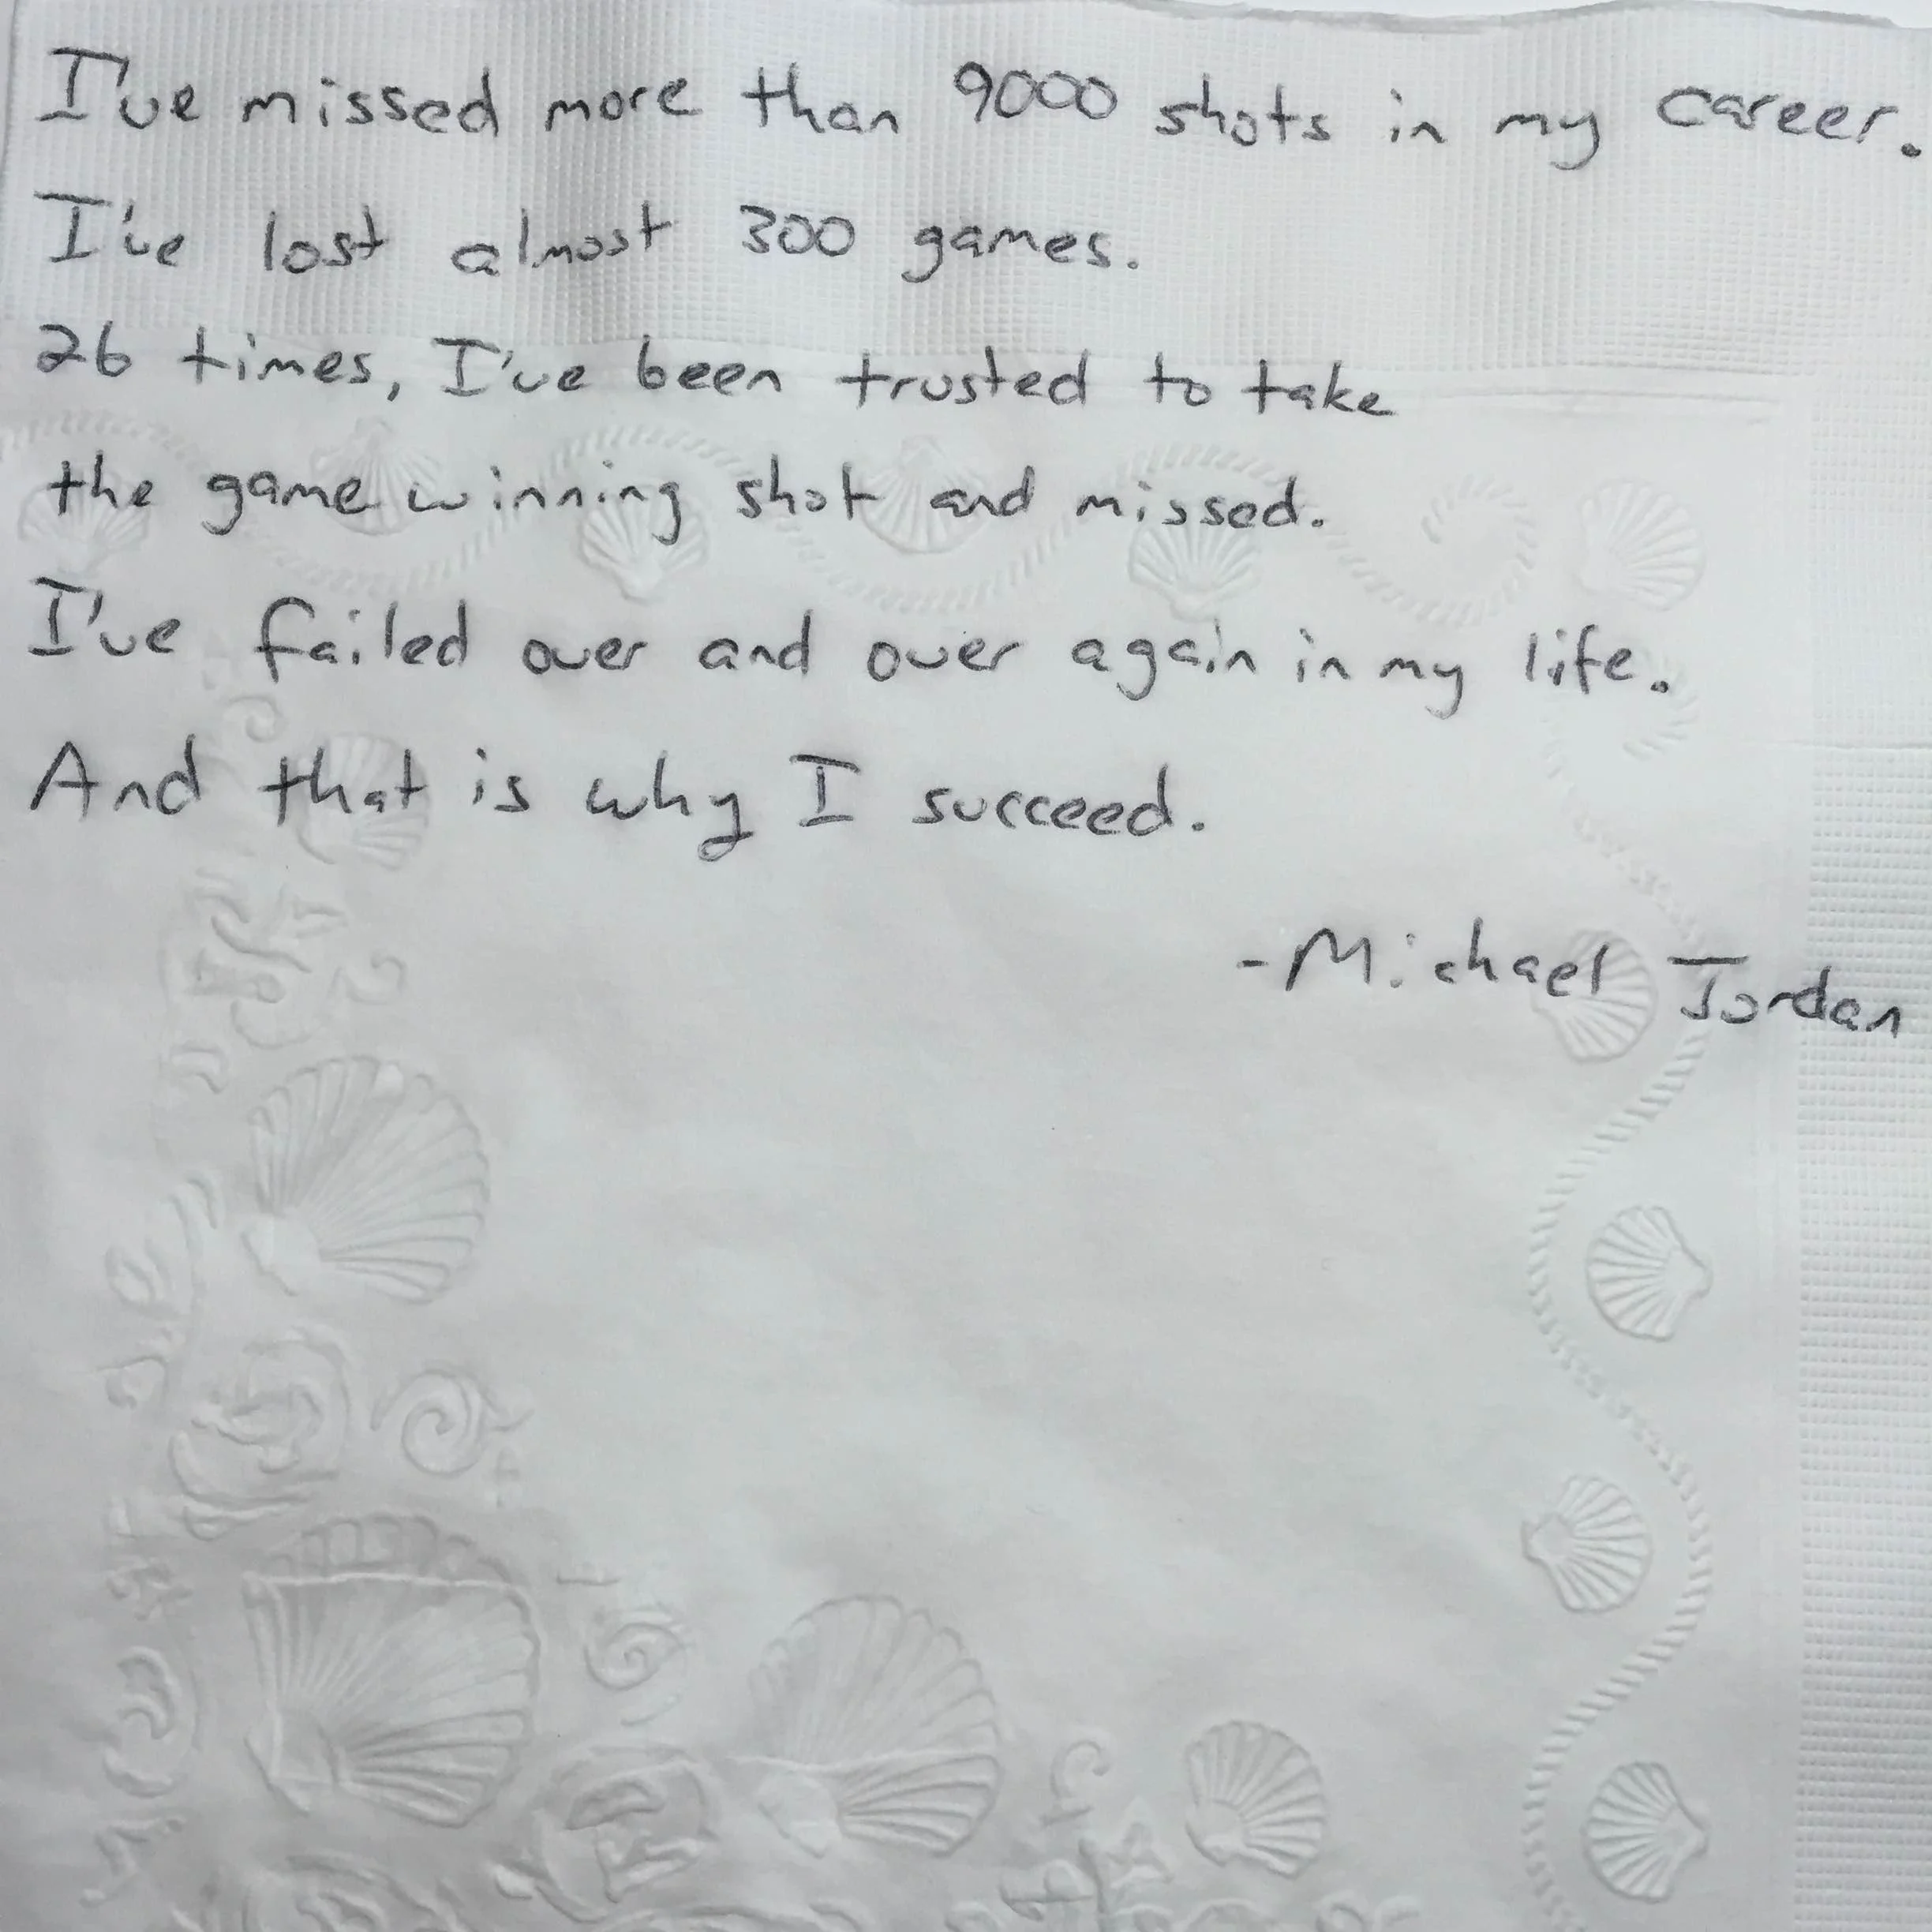 I've missed more than 9000 shots in my career.
I've lost almost 300 games.
26 times, I've been trusted to take
the game winning shot and missed.
I've failed over and over again in my life.
And that is why I succeed.
-Michael Jordan